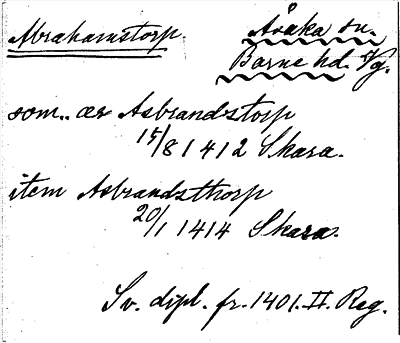 Abrahamstorp. Åsaka sn.
Barne hd. Vg.
som.. ær Asbrandstorp
15/8 1412 Skara.
item Asbrandzthorp
20/1 1414 Skara.
Sv. dipl. fr. 1401. II. Reg.